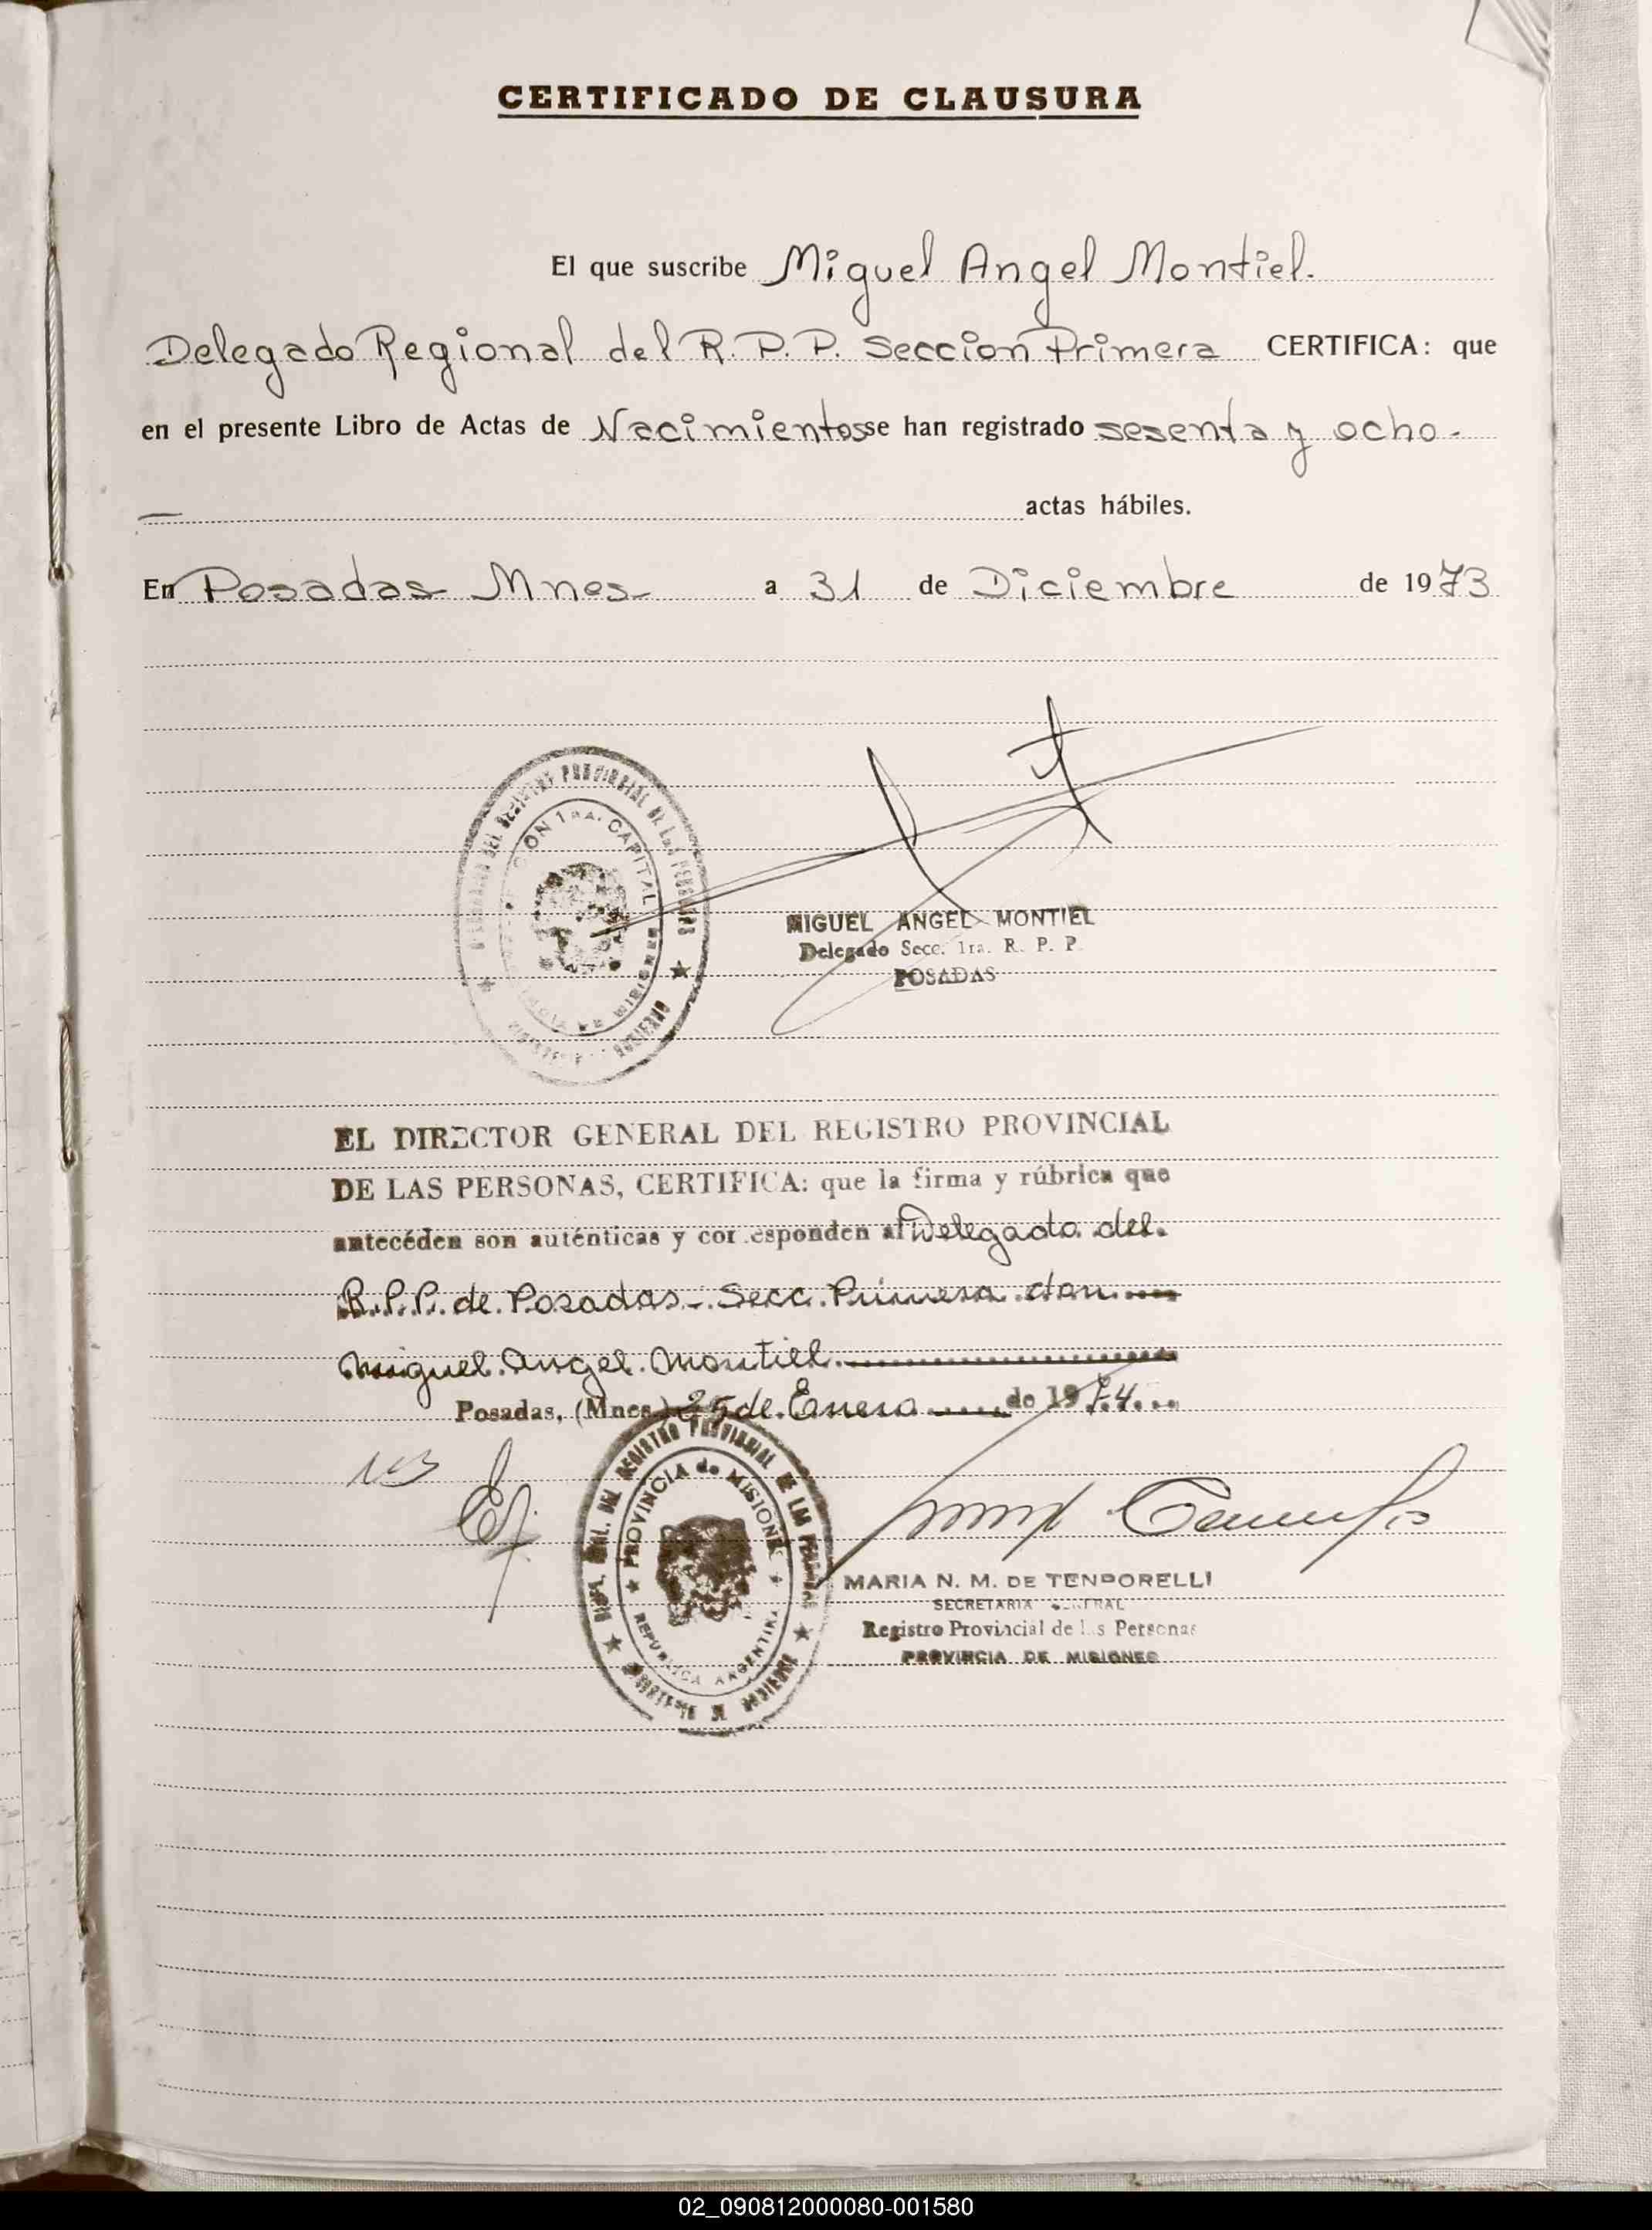 CERTIFICADO DE CLAUSURA
El que suscribe Miguel Angel Montiel.
Delegado Regional del R. P. P. Seccion Primera CERTIFICA: que
en el presente Libro de Actas de Nacimientos se han registrado sesenta y ocho.-
— actas hábiles.
En Posadas Mnes a 31 de Diciembre de 1973
PROVINCIAL DE LAS PERSONAS
1ra. CAPITAL
MIGUEL ANGEL MONTIEL
Delegado Secc. 1ra. R. P. P.
POSADAS
EL DIRECTOR GENERAL DEL REGISTRO PROVINCIAL
DE LAS PERSONAS, CERTIFICA: que la firma y rúbrica que
antecéden son auténticas y corresponden al Delegado del
R.P.P. de Posadas - Secc. Primera don
Miguel Angel Montiel.
Posadas, (Mnes.) 25 de Enero de 1974
DEL REGISTRO PROVINCIAL DE LAS PERSONAS
PROVINCIA de MISIONES
REPUBLICA ARGENTINA
MARIA N. M. DE TENDORELLI
SECRETARIA GENERAL
Registro Provincial de las Personas
PROVINCIA DE MISIONES
02_090812000080-001580